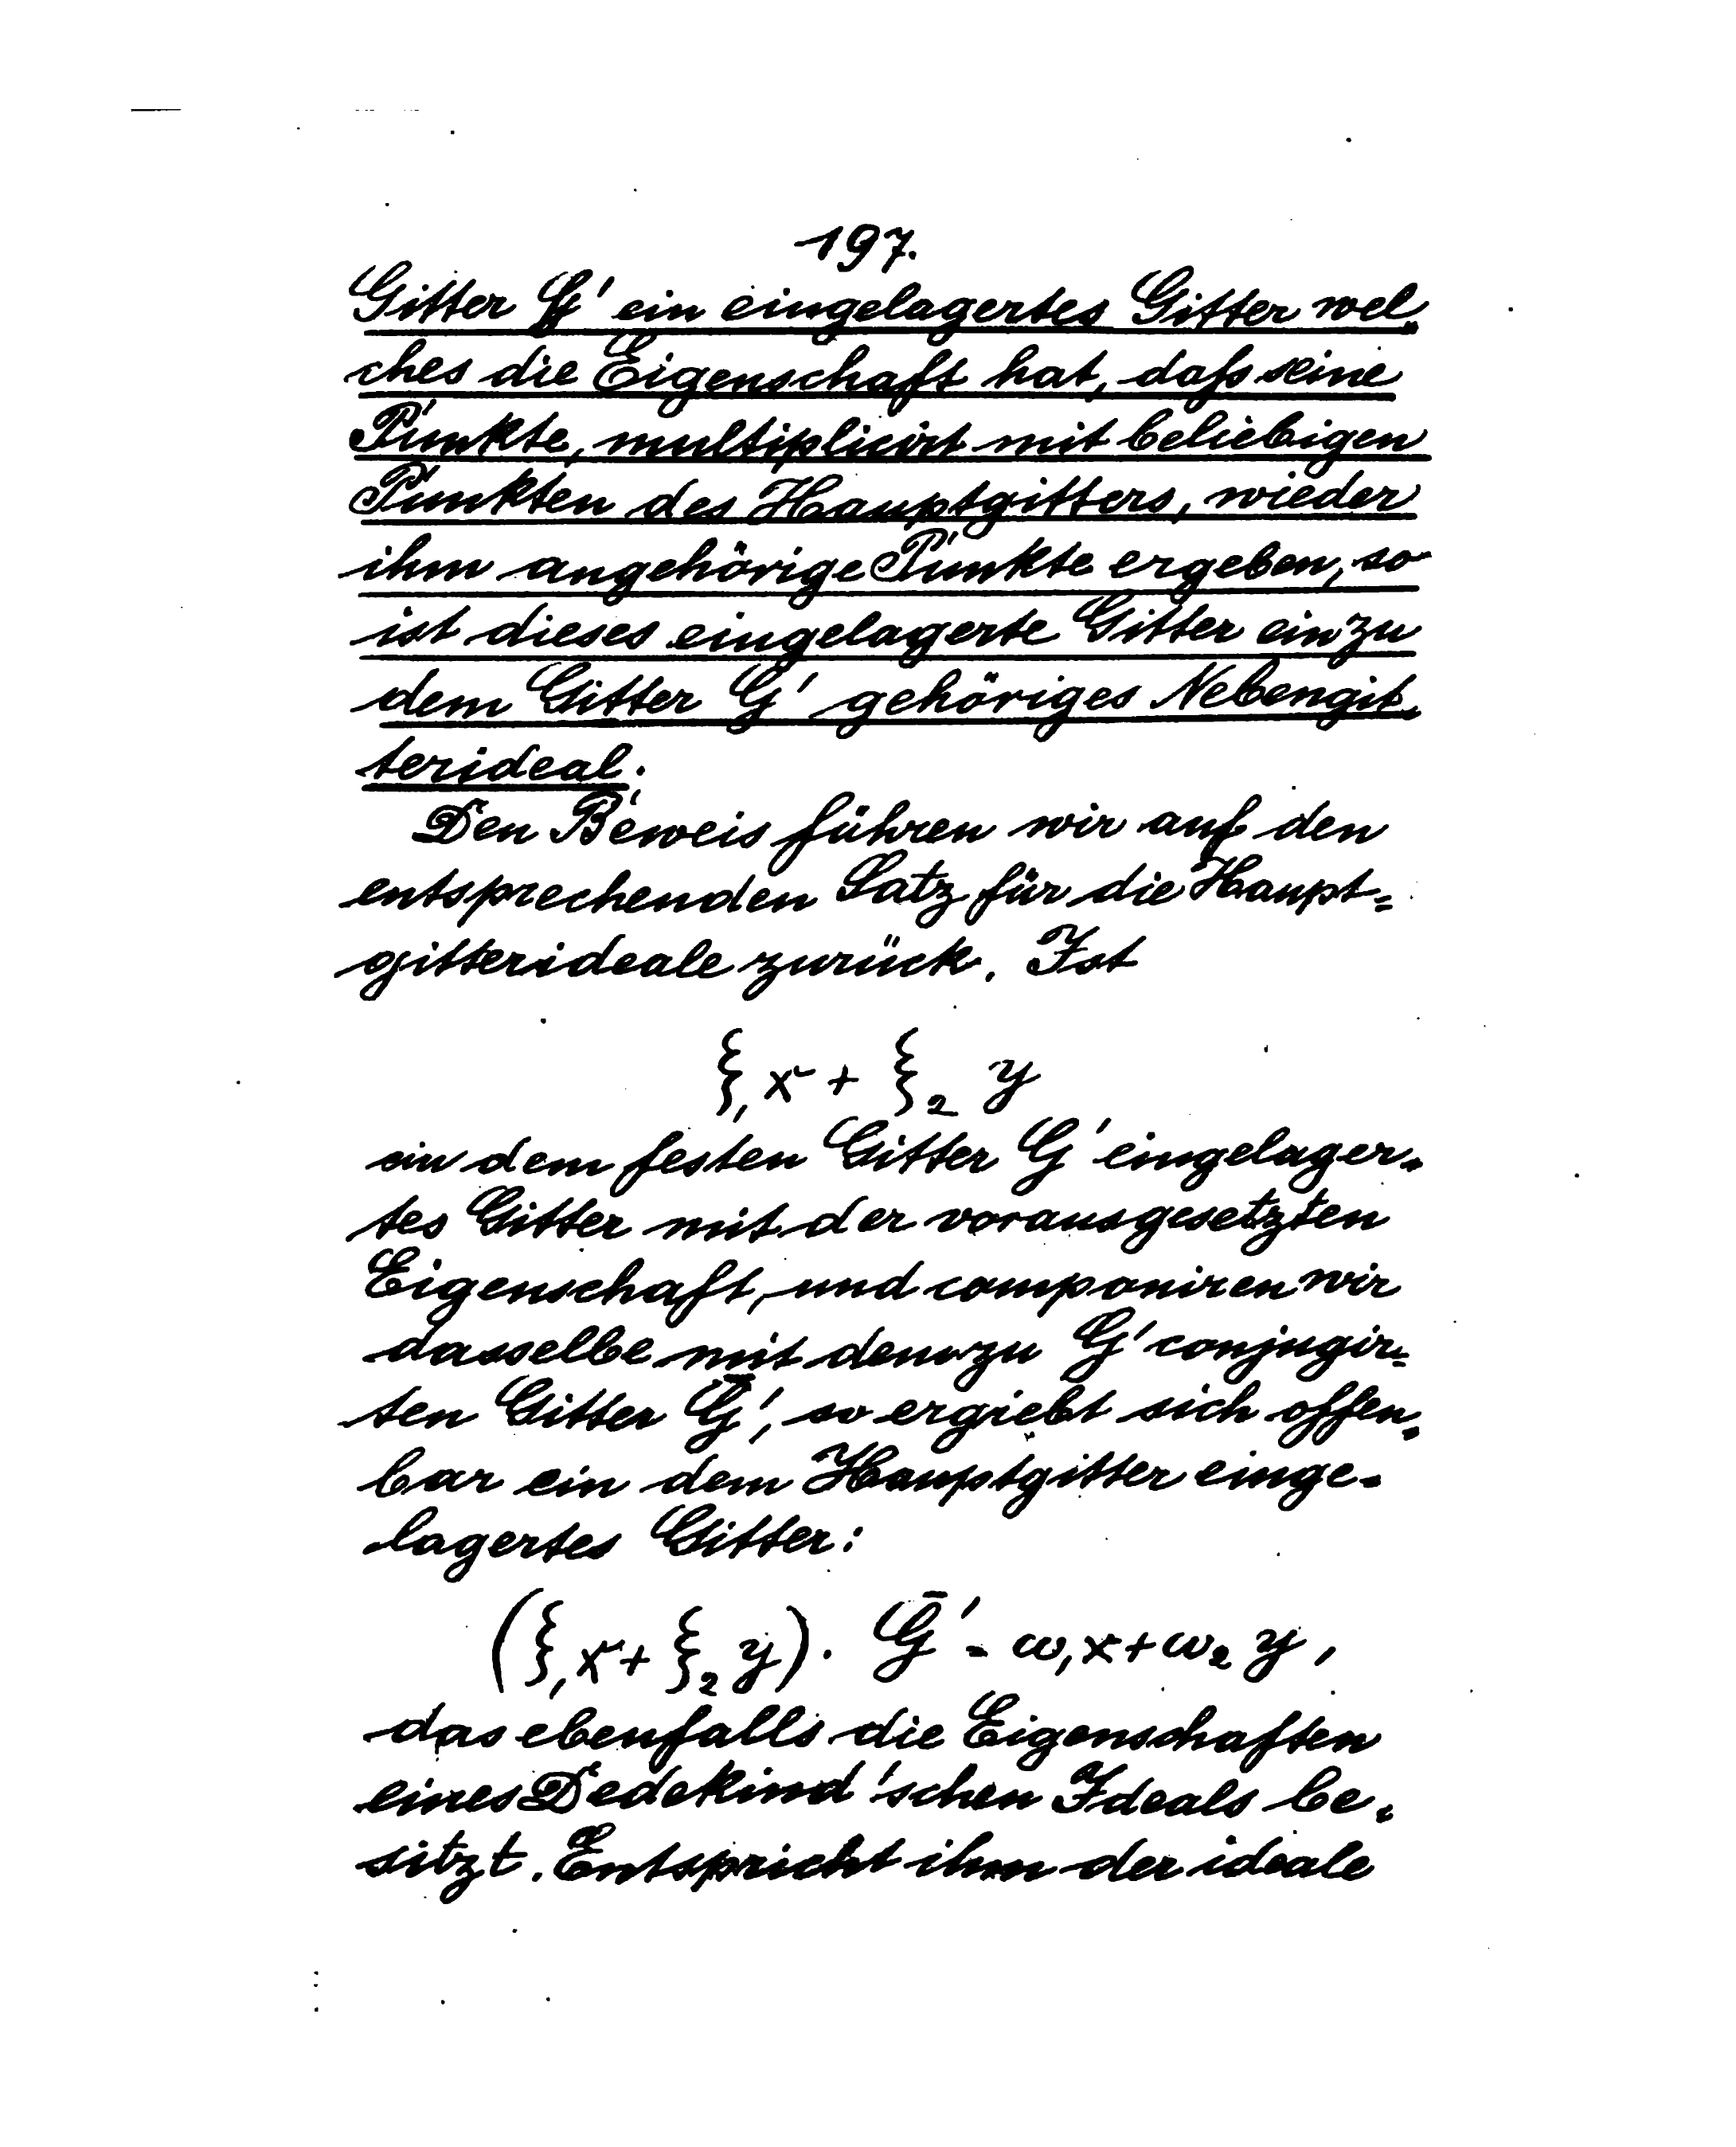 197.
Gitter G' ein eingelagertes Gitter wel-
ches die Eigenschaft hat, daß seine
Punkte, multiplicirt mit beliebigen
Punkten des Hauptgitters, wieder
ihm angehörige Punkte ergeben, so
ist dieses eingelagerte Gitter ein zu
dem Gitter G' gehöriges Nebengit-
terideal.
Den Beweis führen wir auf den
entsprechenden Satz für die Haupt=
gitterideale zurück. Ist
ξ₁x + ξ₂ y
ein dem festen Gitter G' eingelager-
tes Gitter mit der vorausgesetzten
Eigenschaft, und componiren wir
dasselbe mit dem zu G' conjugir=
ten Gitter Ḡ', so ergiebt sich offen-
bar ein dem Hauptgitter einge-
lagertes Gitter:
(ξ₁x + ξ₂ y). Ḡ' = ω₁x + ω₂ y,
das ebenfalls die Eigenschaften
eines Dedekind'schen Ideals be-
sitzt. Entspricht ihm der ideale